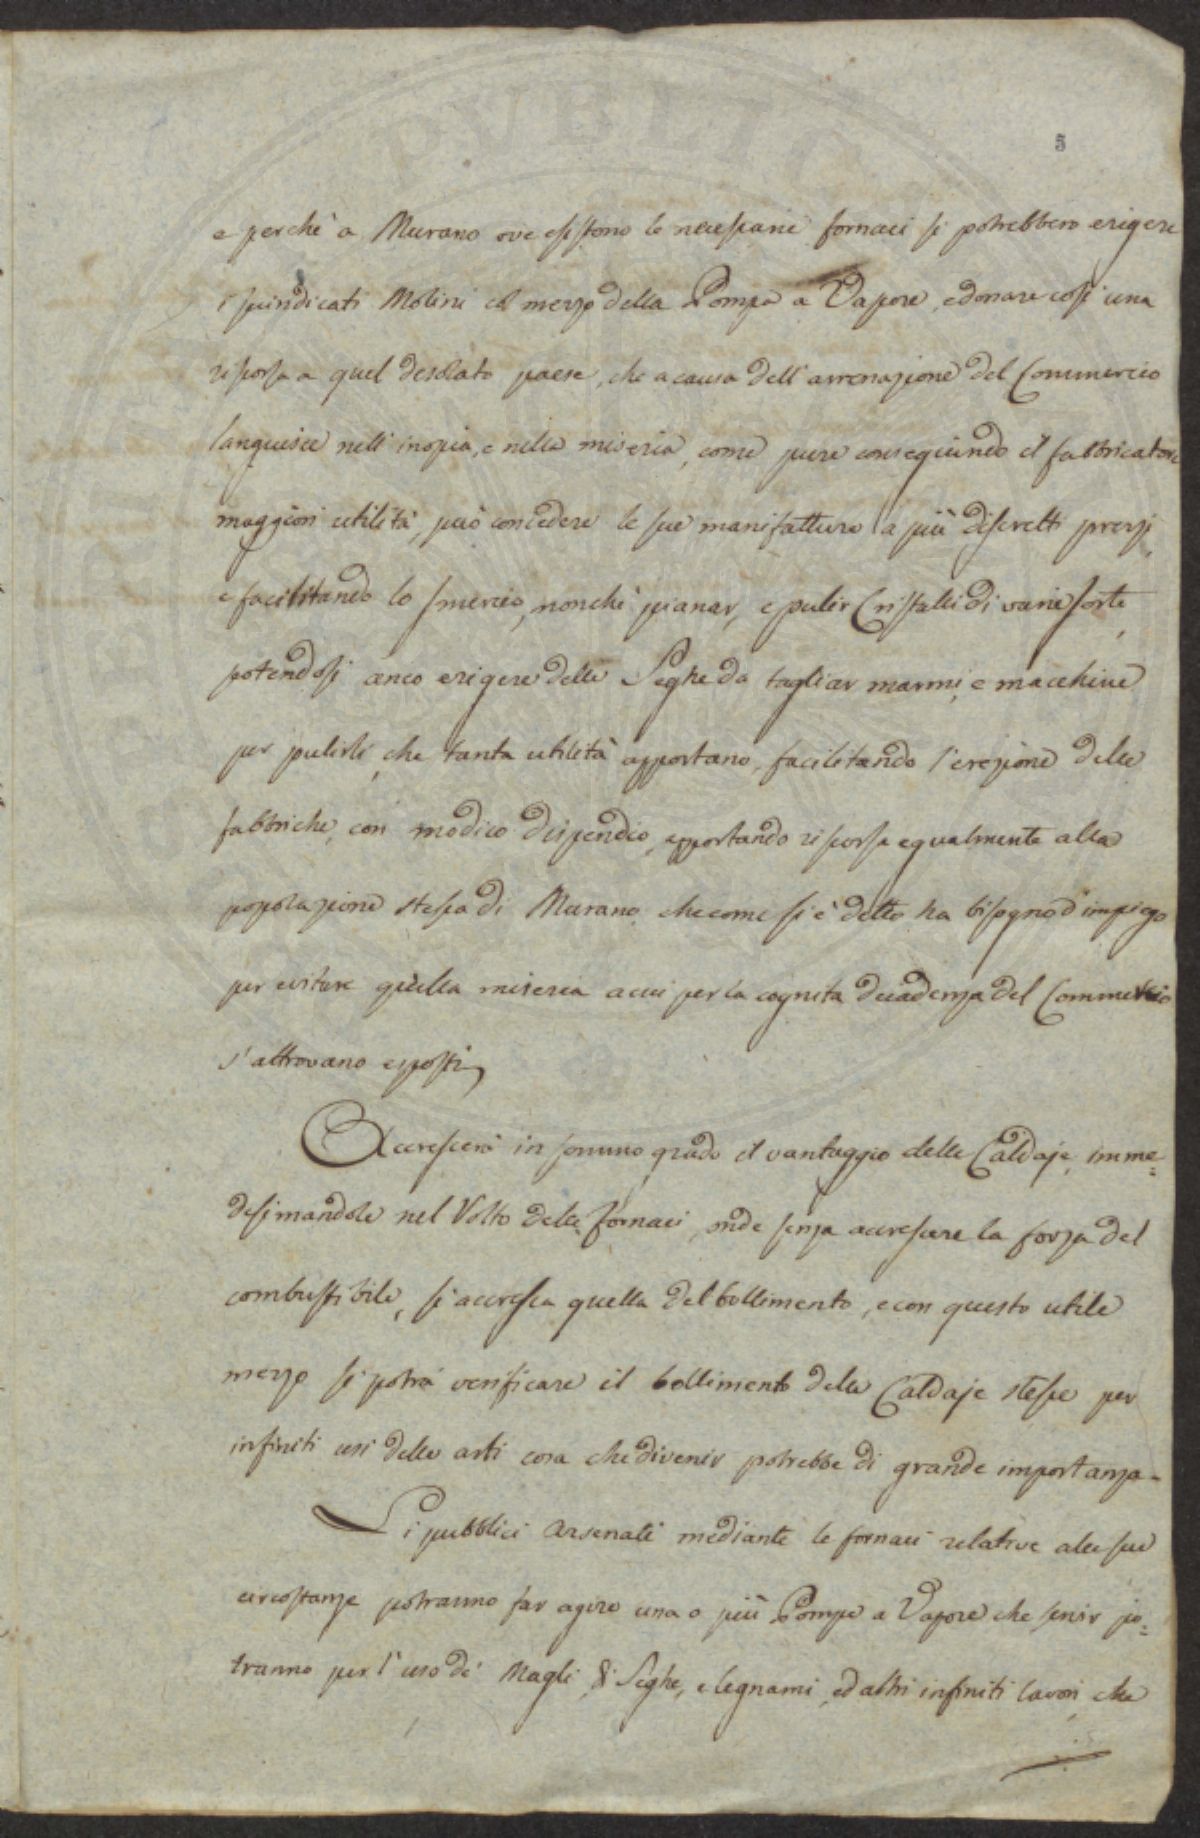 5
e perchè a Murano ove esistono le necessarie fornaci si potrebbero erigere
i suindicati Molini col mezzo della Pompa a Vapore, e donare così una
risorsa a quel desolato paese, che a causa dell'arrenazione del Commercio
languisce nell'inopia, e nella miseria, come pure conseguindo il fabbricatore
maggiori utilità, può concedere le sue manifatture a più discretti prezzi,
e facilitando lo smercio, nonchè pianar, e pulir Cristalli di varie sorte,
potendosi anco erigere delle Seghe da tagliar marmi, e macchine
per pulirli, che tanta utilità apportano, facilitando l'erezione delle
fabbriche, con modico dispendio, apportando risorsa egualmente alla
popolazione stessa di Murano, che come si è detto ha bisogno d'impiego
per evitare quella miseria a cui per la cognita decadenza del Commercio
s'attrovano esposti.
Accrescerà in sommo grado il vantaggio delle Caldaje, imme=
desimandole nel Volto delle fornaci, onde senza accrescere la forza del
combustibile, si accresca quella del bollimento, e con questo utile
mezzo si potrà verificare il bollimento delle Caldaje stesse per
infiniti usi delle arti cosa che divenir potrebbe di grande importanza.
Li pubblici Arsenali mediante le fornaci relative alle sue
circostanze potranno far agire una o più Pompe a Vapore che servir po=
tranno per l'uso de' Magli, di Seghe, e legnami, ed altri infiniti lavori, che